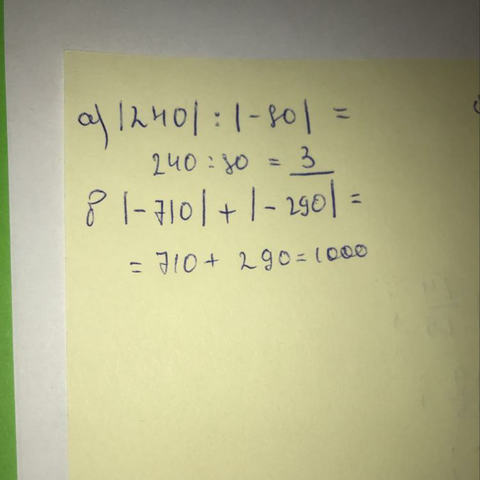 а) |240| : |-80| =
240 : 80 = 3
б |-710| + |-290| =
= 710 + 290 = 1000